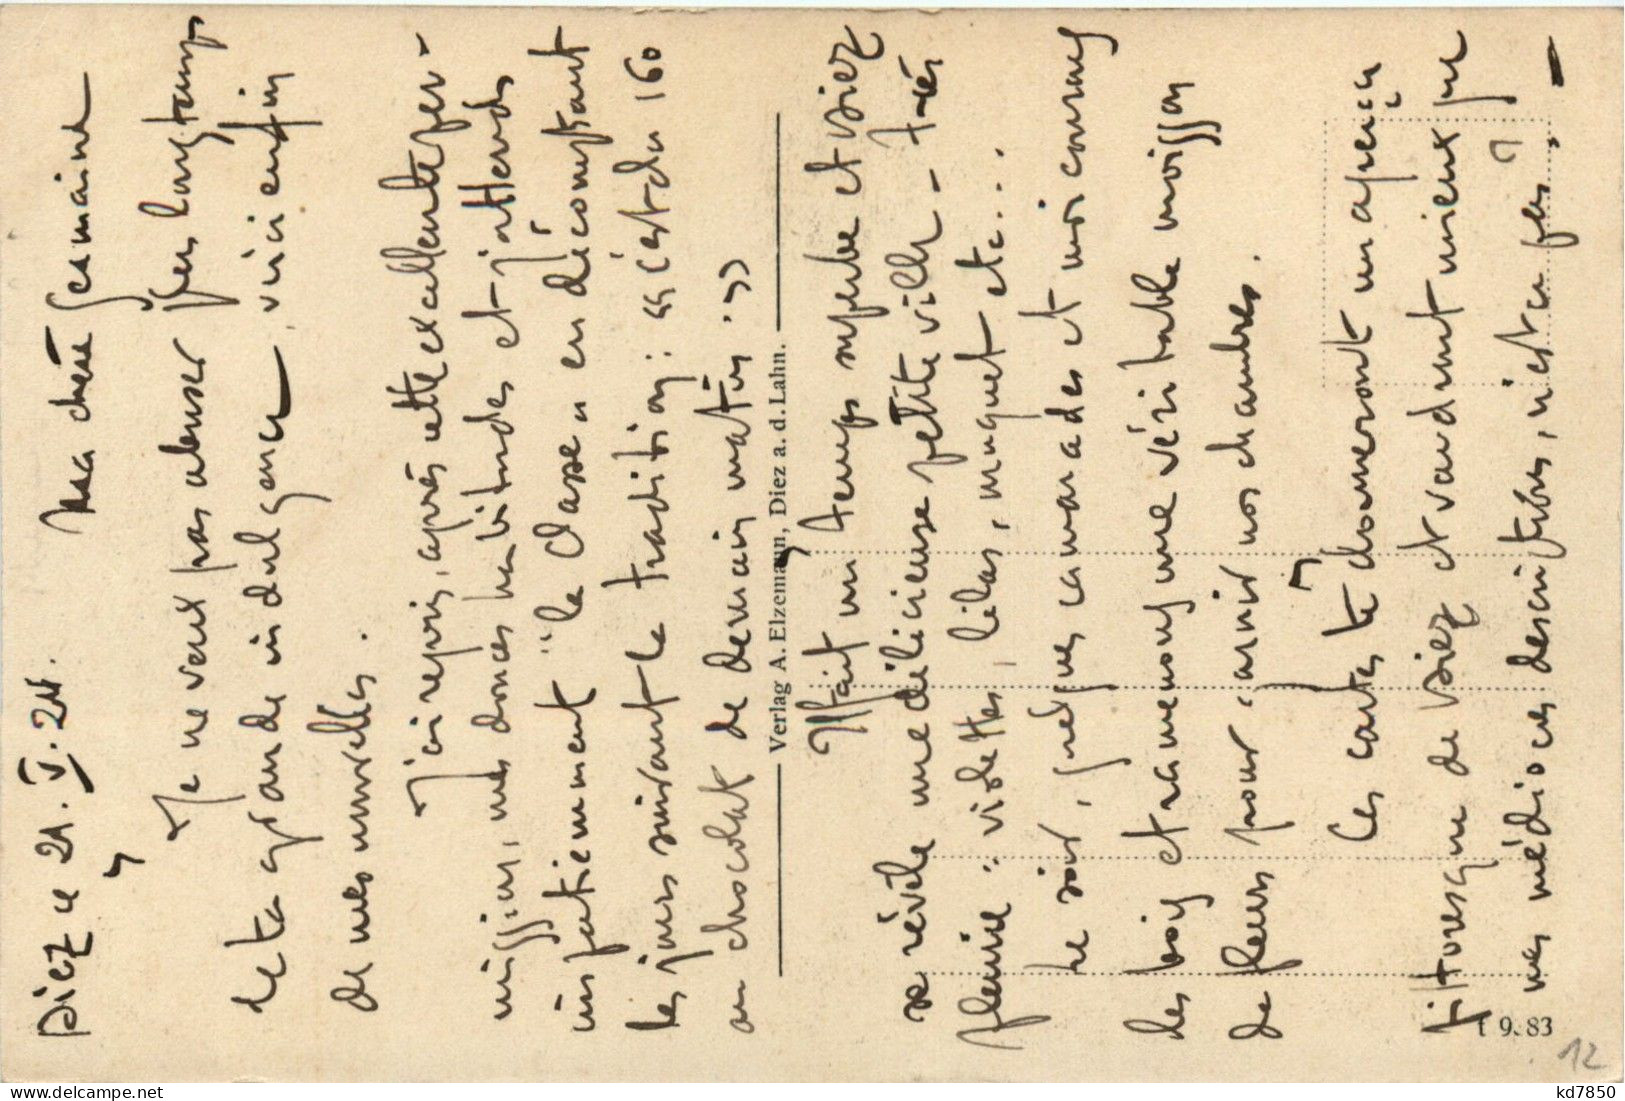 Diez ce 21. V. 24.
Ma chère Germaine
Je ne veux pas abuser plus longtemps
de ta grande indulgence, voici enfin
de mes nouvelles.
J'ai repris, après cette excellente per-
mission, mes douces habitudes et j'attends
impatiemment "la classe" en décomptant
les jours suivant la tradition : "c'est du 160
au chocolat de demain matin."
Il fait un temps superbe et Diez
se révèle une délicieuse petite ville - très
fleurie : violettes, lilas, muguet etc...
Le soir, quelques camarades et moi courons
les bois et ramenons une véritable moisson
de fleurs pour garnir nos chambres.
Ces cartes te donneront un aperçu
pittoresque de Diez et vaudront mieux que
mes médiocres descriptions, n'est-ce pas ?
Verlag A. Elzemann, Diez a. d. Lahn.
t 9. 83
12
kd7850